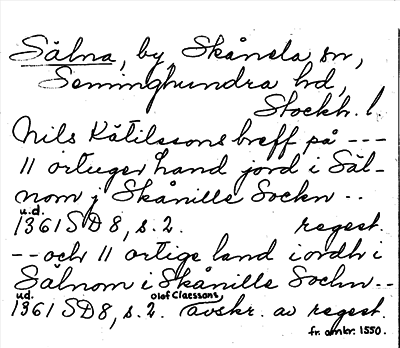 Sälna, by, Skånela sn,
Seminghundra hd,
Stockh. l.
Nils Kätilssons breff på ---
11 örtuger hand jord i Säl-
nom j Skånille Sockn --
u.d.
1361 SD 8, s. 2. regest.
-- och 11 ortige land iordh i
Sälnom i Skånille Sochn --
u.d. Olof Claessons
1361 SD 8, s. 2. avskr. av regest.
fr. omkr. 1550.